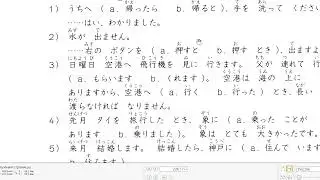 1) うちへ ( a. 帰ったら b. 帰ると )、手を 洗って くださ
……はい、わかりました。
2) 水が 出ません。
……右の ボタンを ( a. 押すと b. 押す とき )、出ますよ
3) 日曜日 空港へ 飛行機を 見に 行きます。 父が 連れて 行
( a. もらいます b. くれます )。 空港は 海の 上に
ありますから、空港へ ( a. 行く b. 行った ) とき、長い
渡らなければ なりません。
4) 先月 タイを 旅行した とき、象に ( a. 乗った ことが
あります b. 乗りました )。 象は とても 大きかったです。
5) 来月 結婚します。 結婚したら、神戸に ( a. 住んで います